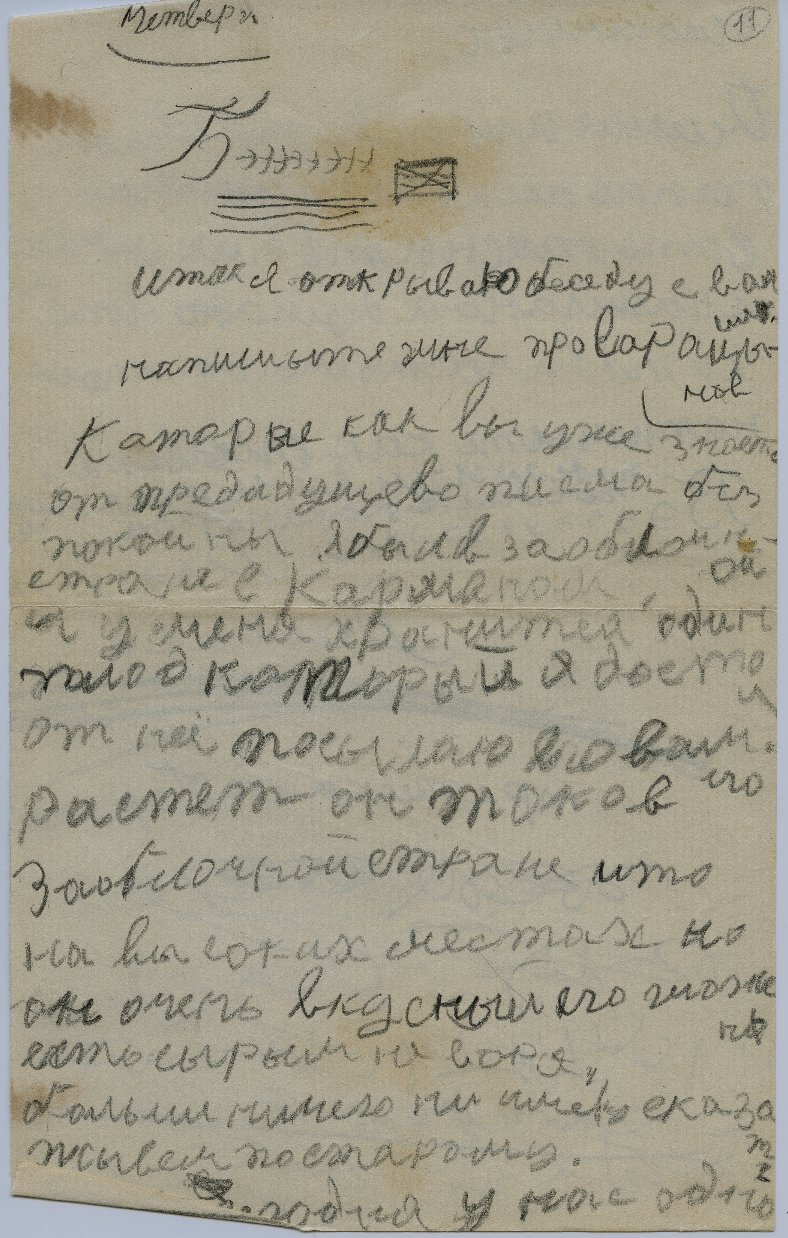 Четверг
11
Б
итак я открываю беседу с вам
ими.
напишыте мне про Варанцы-
нов
Каторые как вы уже знаете
от предадущево писма без
покойны Я был в заоблочн-
ой
стране в Карманом,
и у меня хранитса один
плод каторый я доста
л
от неё посылаю ево вам.
растет он токов
что
Заоблочной стране ито
на высоких местах но
он очень вкусный его можн
но
есть сырым не варя,,
больши ничего ни имею сказа
т
жывем постарому.
годня у нас одно